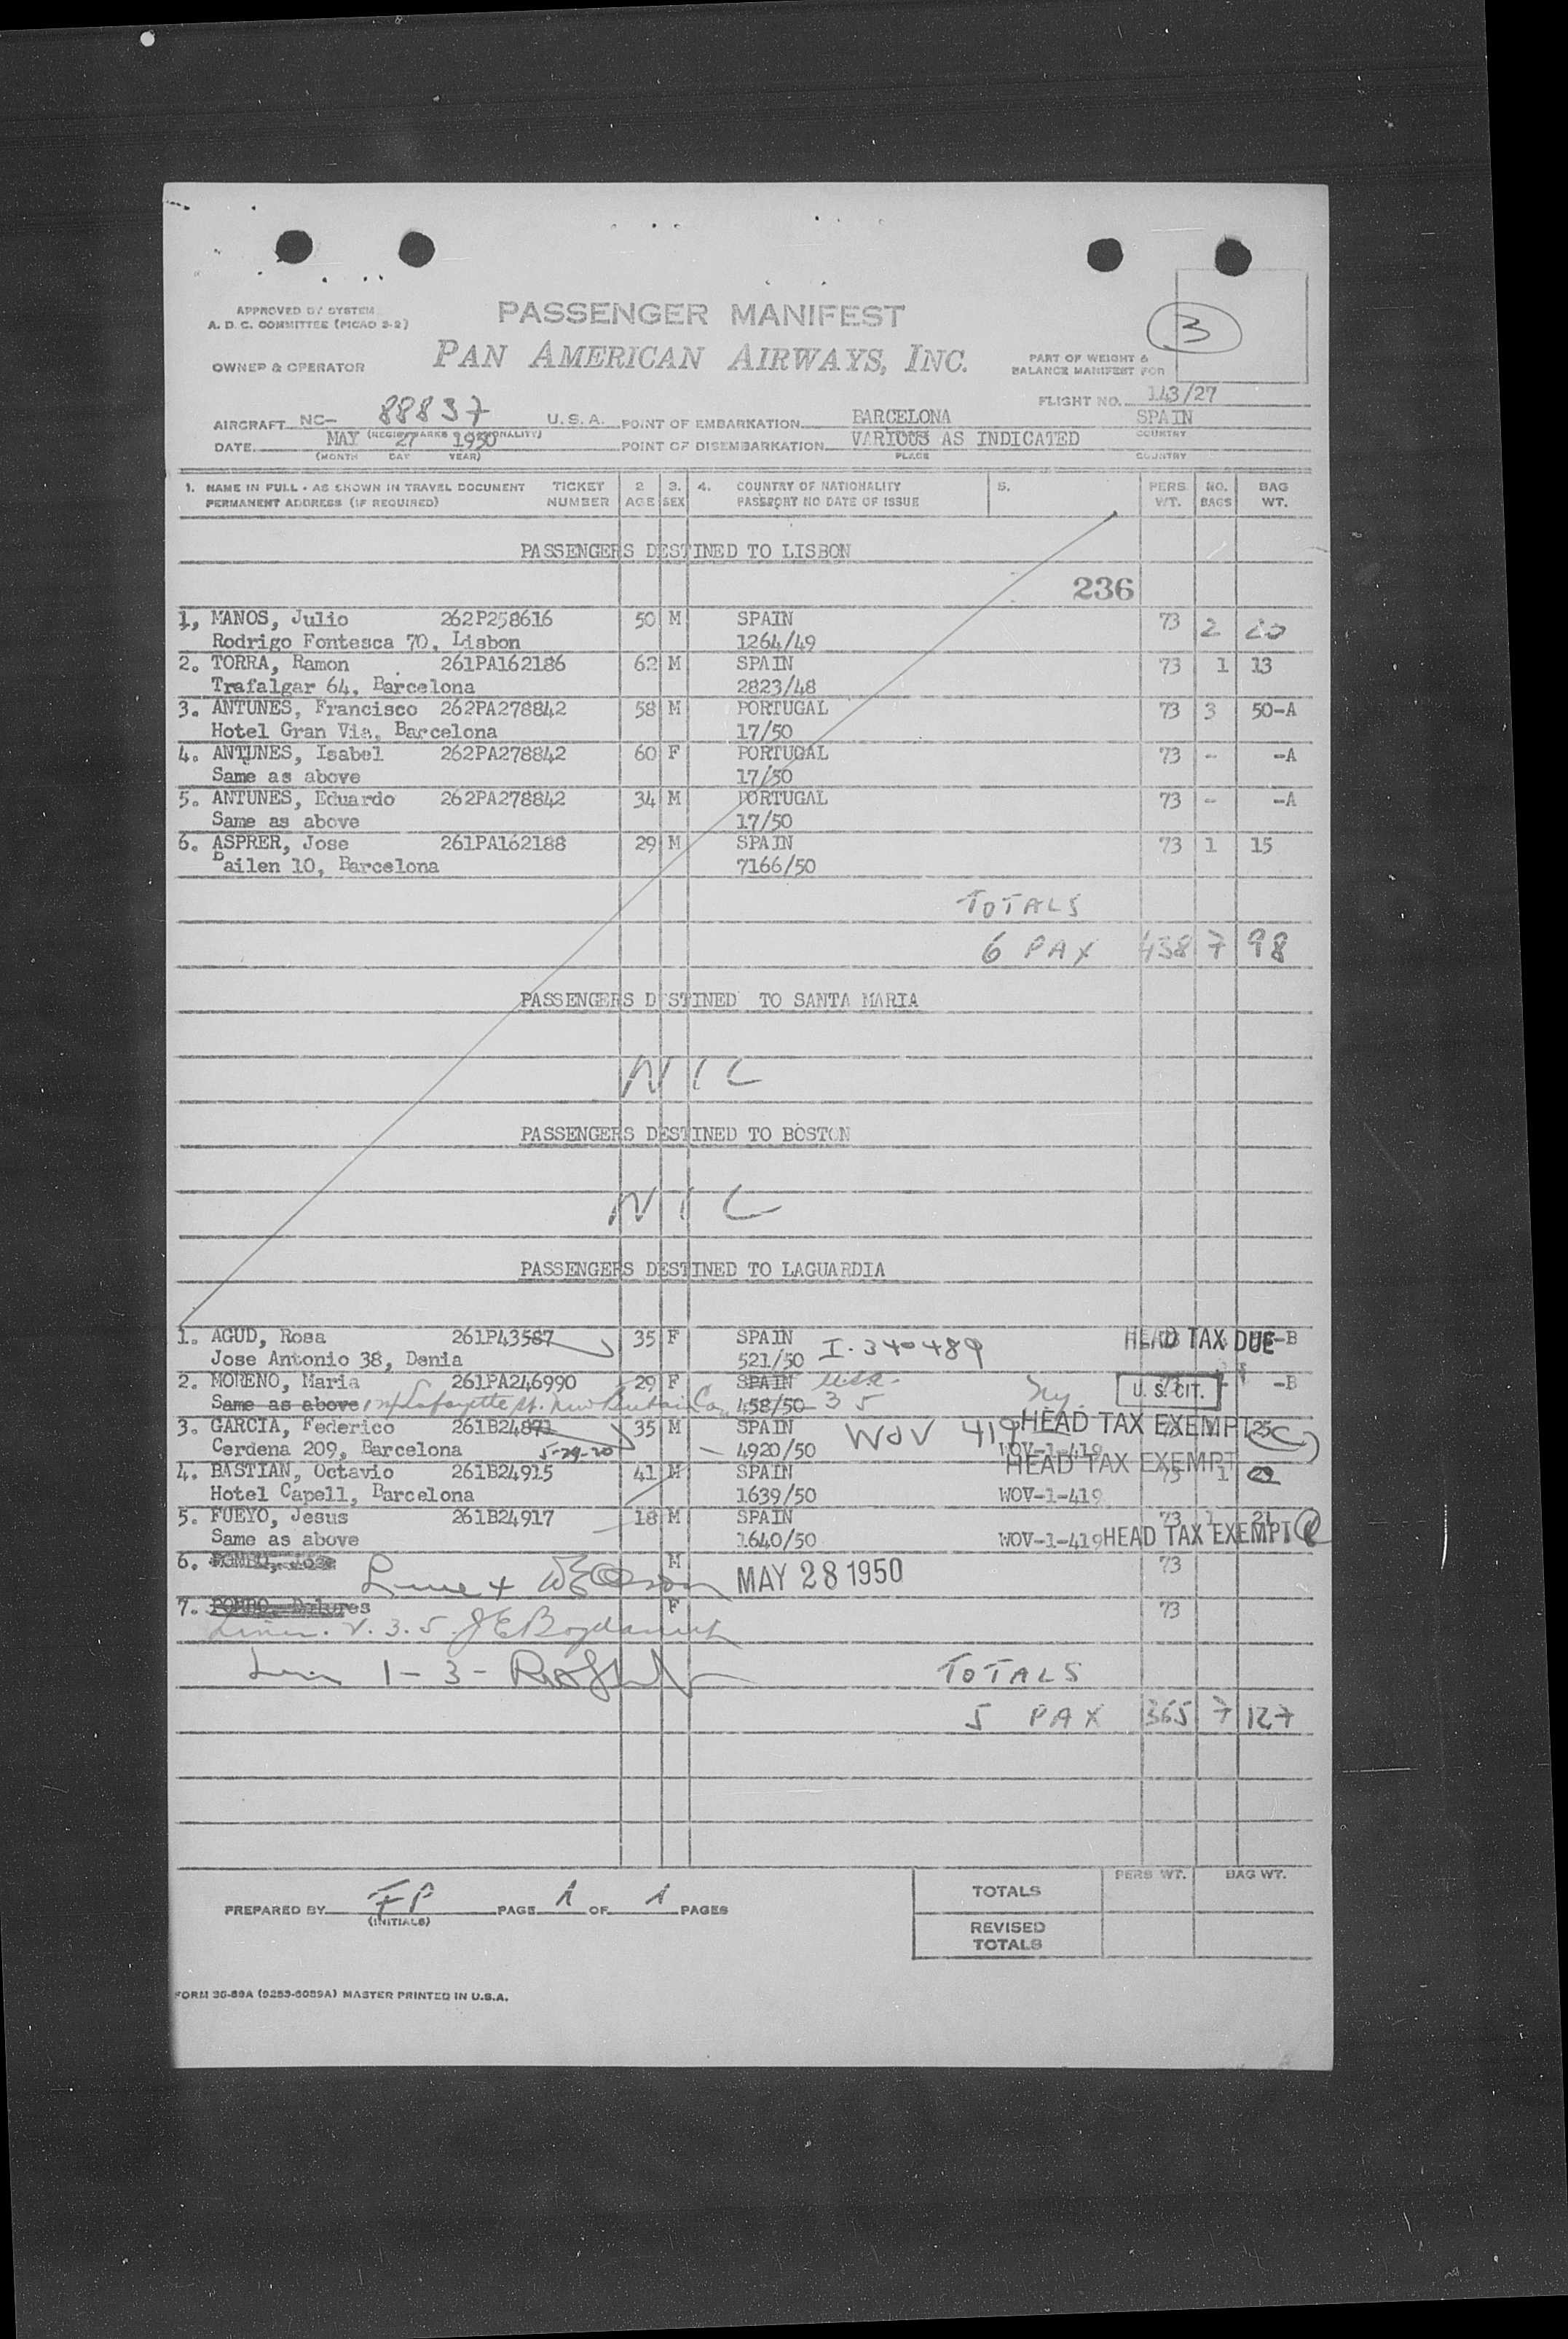 APPROVED BY SYSTEM
A. D. C. COMMITTEE (PICAO 2-2)
PASSENGER MANIFEST
3
OWNER & OPERATOR
PAN AMERICAN AIRWAYS, INC.
PART OF WEIGHT &
BALANCE MANIFEST FOR
FLIGHT NO. 143/27
AIRCRAFT NC- 88837 U.S.A. POINT OF EMBARKATION BARCELONA SPAIN
DATE MAY 27 1950 POINT OF DISEMBARKATION VARIOUS AS INDICATED COUNTRY
(MONTH DAY YEAR) PLACE COUNTRY
1. NAME IN FULL - AS SHOWN IN TRAVEL DOCUMENT TICKET 2 3. 4. COUNTRY OF NATIONALITY 5. PERS NO. BAG
PERMANENT ADDRESS (IF REQUIRED) NUMBER AGE SEX PASSPORT NO DATE OF ISSUE WT. BAGS WT.
PASSENGERS DESTINED TO LISBON
236
1, MANOS, Julio 262P258616 50 M SPAIN 73 2 20
Rodrigo Fontesca 70, Lisbon 1264/49
2. TORRA, Ramon 261PA162186 62 M SPAIN 73 1 13
Trafalgar 64, Barcelona 2823/48
3. ANTUNES, Francisco 262PA278842 58 M PORTUGAL 73 3 50-A
Hotel Gran Via, Barcelona 17/50
4. ANTUNES, Isabel 262PA278842 60 F PORTUGAL 73 - -A
Same as above 17/50
5. ANTUNES, Eduardo 262PA278842 34 M PORTUGAL 73 - -A
Same as above 17/50
6. ASPRER, Jose 261PA162188 29 M SPAIN 73 1 15
Bailen 10, Barcelona 7166/50
TOTALS
6 PAX 438 7 98
PASSENGERS DESTINED TO SANTA MARIA
NIL
PASSENGERS DESTINED TO BOSTON
NIL
PASSENGERS DESTINED TO LAGUARDIA
1. AGUD, Rosa 261P43587 35 F SPAIN I-340489 HEAD TAX DUE -B
Jose Antonio 38, Denia 521/50
2. MORENO, Maria 261PA246990 29 F SPAIN USA NY U. S. CIT. -B
Same as above Lafayette St. New Britain 458/50 35
3. GARCIA, Federico 261B24871 35 M SPAIN WOV 419 HEAD TAX EXEMPT 25
Cerdena 209, Barcelona 5-29-20 4920/50 WOV-1-419
4. BASTIAN, Octavio 261B24915 41 M SPAIN HEAD TAX EXEMPT 73 1
Hotel Capell, Barcelona 1639/50 WOV-1-419
5. FUEYO, Jesus 261B24917 18 M SPAIN 73 1 21
Same as above 1640/50 WOV-1-419 HEAD TAX EXEMPT
6. M MAY 28 1950 73
7. POMBO, Dolores F 73
1-3-
TOTALS
5 PAX 365 7 127
PREPARED BY FP PAGE 1 OF 1 PAGES
(INITIALS)
PERS WT. BAG WT.
TOTALS
REVISED
TOTALS
FORM 36-89A (9253-6089A) MASTER PRINTED IN U.S.A.